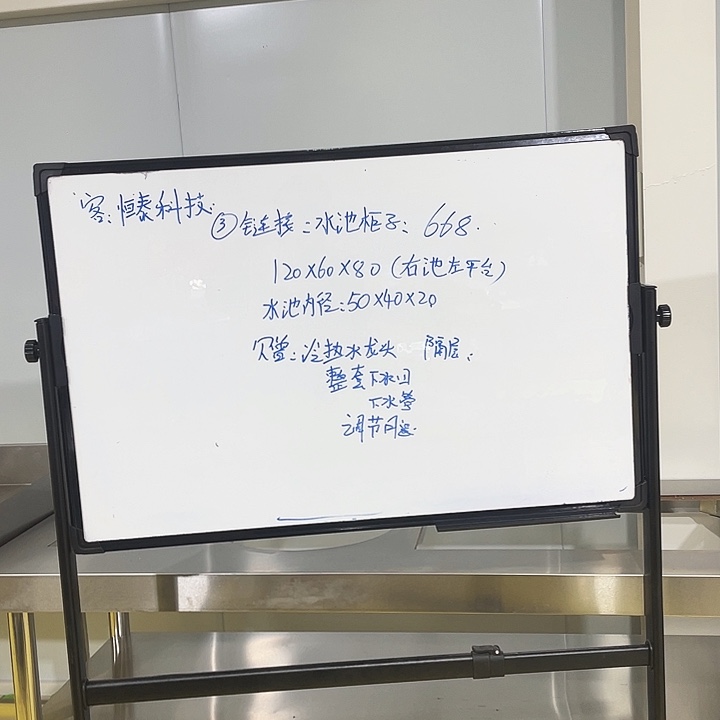 客:恒泰科技
③链接:水池柜子:668.
120×60×80(右池左平台)
水池内径:50×40×20
赠:冷热水龙头 隔层,
整套下水口
下水管
调节脚